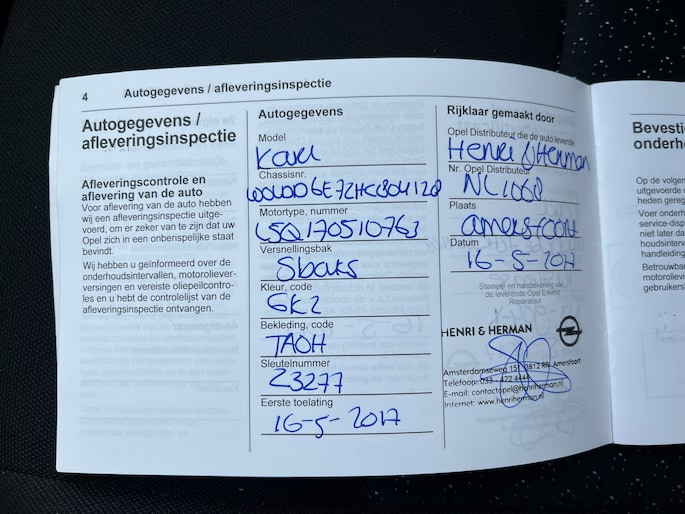 4 Autogegevens / afleveringsinspectie
Autogegevens /
afleveringsinspectie
Afleveringscontrole en
aflevering van de auto
Voor aflevering van de auto hebben
wij een afleveringsinspectie uitge-
voerd, om er zeker van te zijn dat uw
Opel zich in een onberispelijke staat
bevindt.
Wij hebben u geïnformeerd over de
onderhoudsintervallen, motoroliever-
versingen en vereiste oliepeilcontro-
les en u hebt de controlelijst van de
afleveringsinspectie ontvangen.
Autogegevens
Model
Karl
Chassisnr.
Motortype, nummer
Versnellingsbak
5baks
Kleur, code
GK2
Bekleding, code
TAOH
Sleutelnummer
Z3277
Eerste toelating
16-5-2017
Rijklaar gemaakt door
Opel Distributeur die de auto leverde
Henri & Herman
Nr. Opel Distributeur
NL1068
Plaats
amersfoort
Datum
16-5-2017
Stempel en handtekening van
de leverende Opel Erkend
Reparateur
HENRI & HERMAN
Amsterdamseweg 15 3812 RR Amersfoort
Telefoon: 033 - 422 4444
E-mail: contactopel@henriherman.nl
Internet: www.henriherman.nl
Bevesti
onderh
Op de volgen
uitgevoerde o
heden gereg
Voor onderh
service-disp
niet later da
houdsinterv
handleiding
Betrouwbar
motorolievi
gebruikers